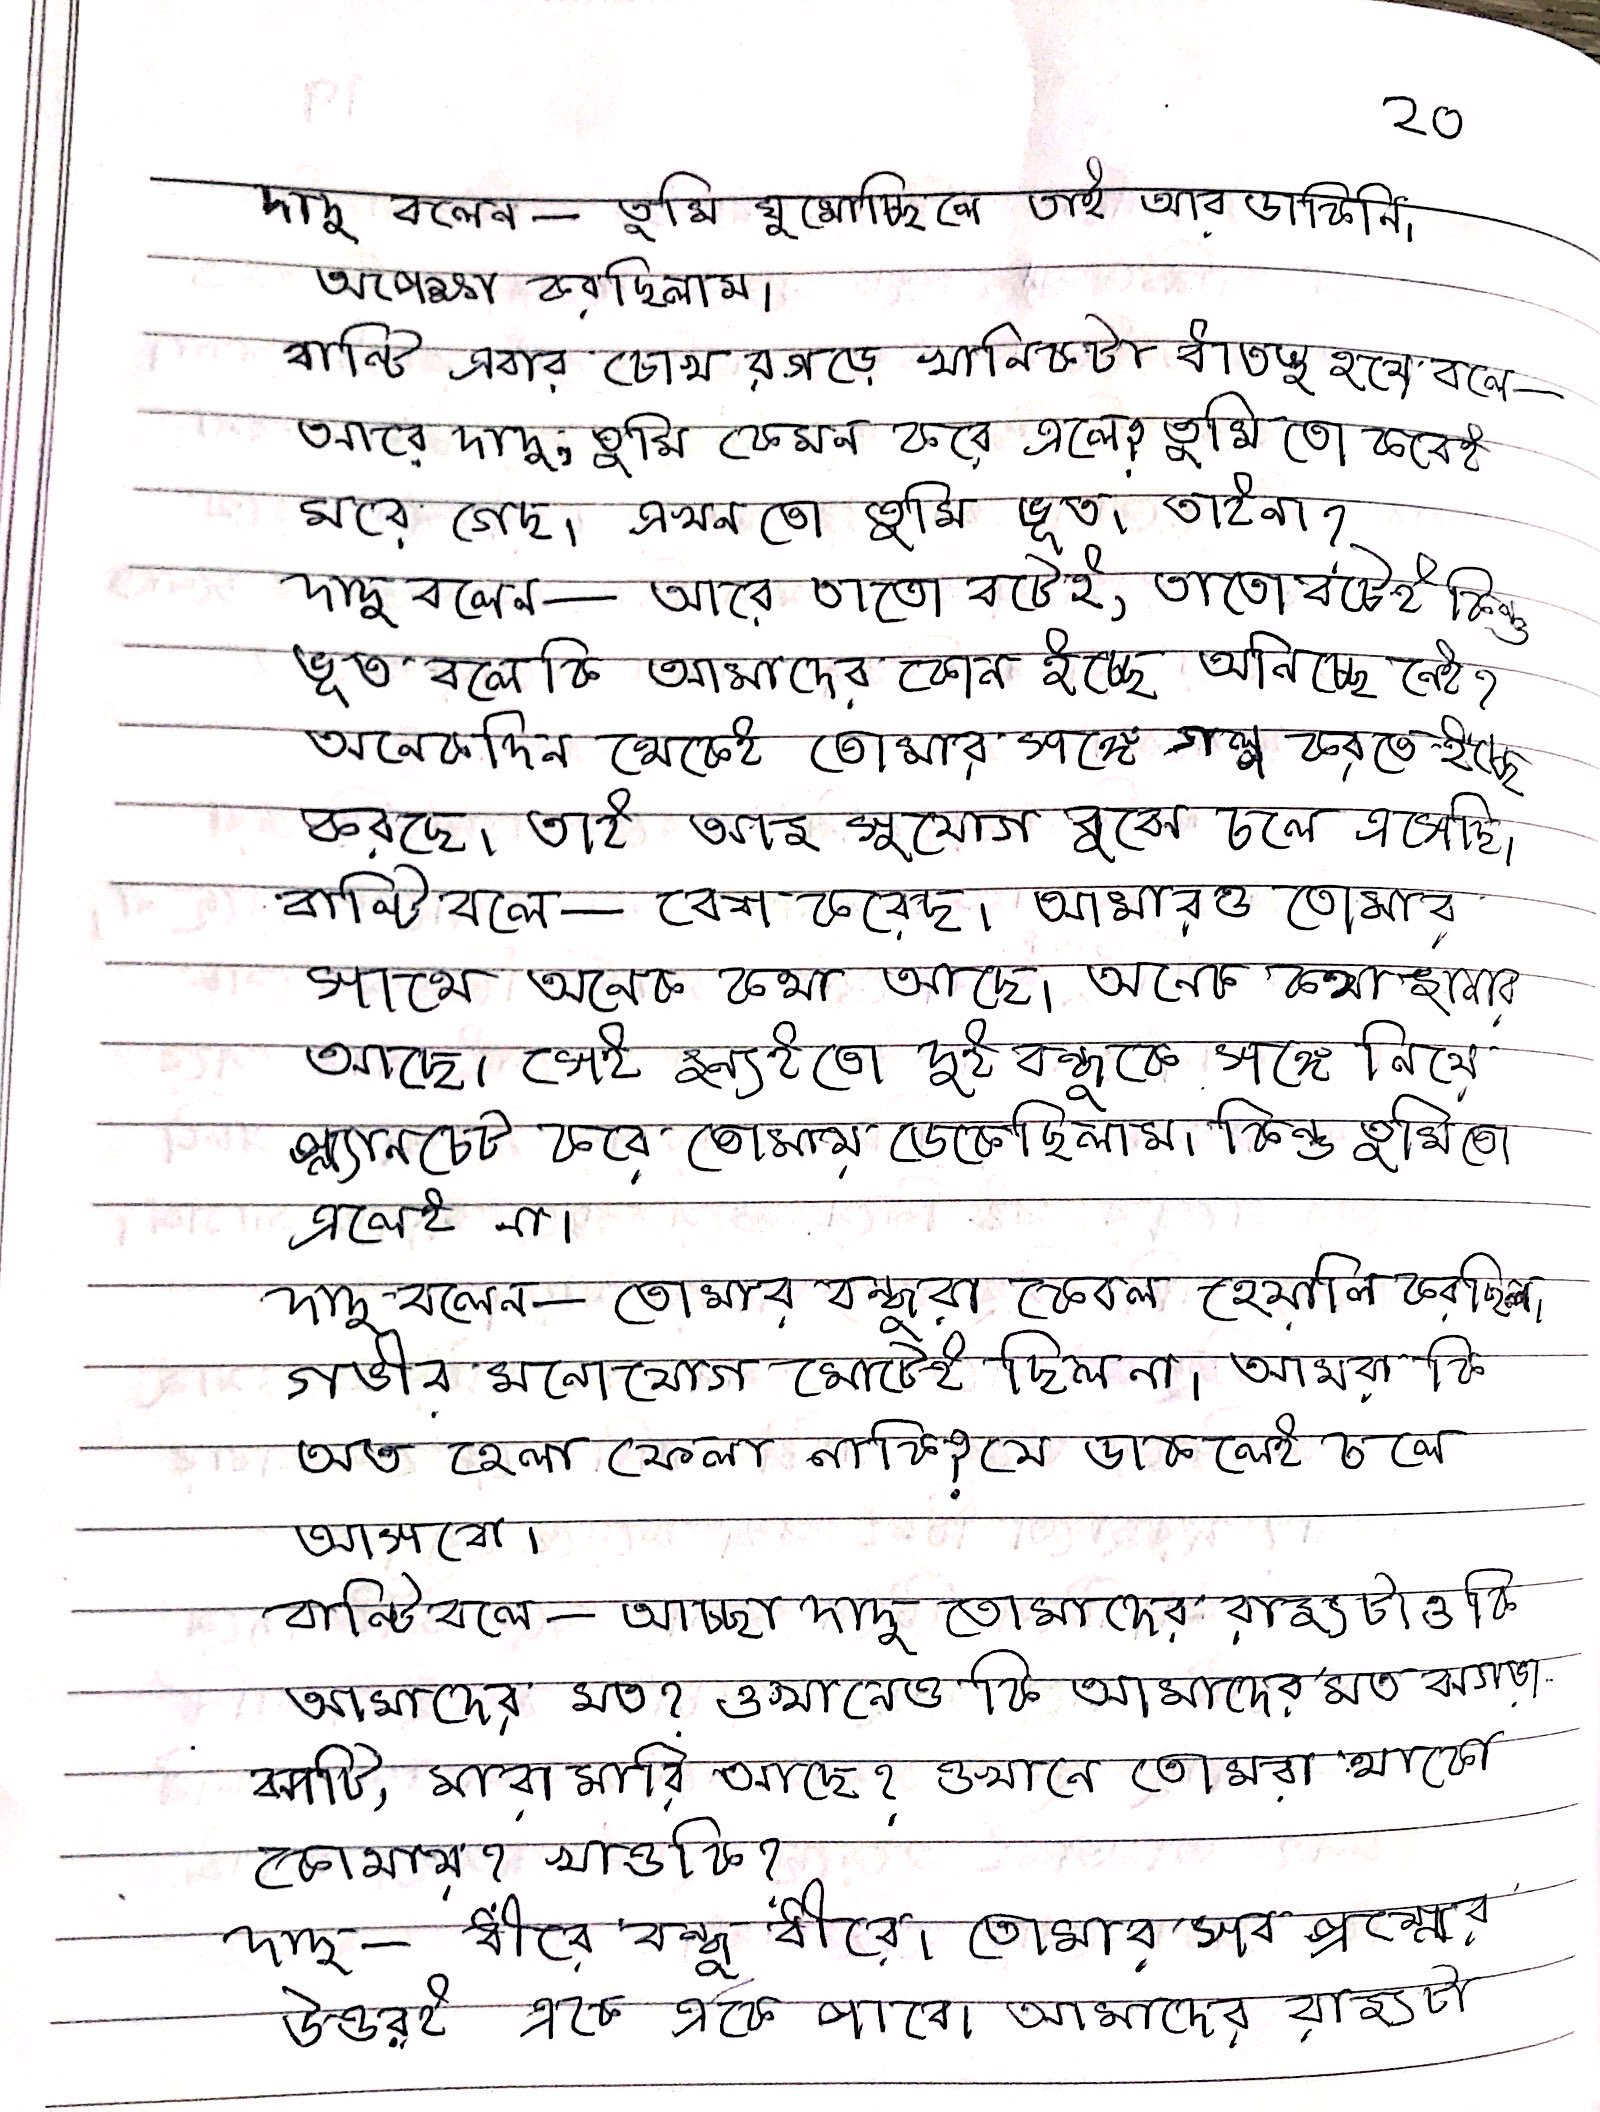 ২০
দাদু বলেন — তুমি ঘুমোচ্ছিলে তাই আর ডাকিনি।
অপেক্ষা করছিলাম।
বান্টি এবার চোখ রগড়ে খানিকটা ধাতস্থ হয়ে বলে —
আরে দাদু, তুমি কেমন করে এলে? তুমি তো কবেই
মরে গেছ। এখন তো তুমি ভূত। তাইনা?
দাদু বলেন — আরে তাতো বটেই, তাতো বটেই কিন্তু
ভূত বলে কি আমাদের কোন ইচ্ছে অনিচ্ছে নেই?
অনেকদিন থেকেই তোমার সঙ্গে গল্প করতে ইচ্ছে
করছে। তাই আজ সুযোগ বুঝে চলে এসেছি।
বান্টি বলে — বেশ করেছ। আমারও তোমার
সাথে অনেক কথা আছে। অনেক কথা জানার
আছে। সেই জন্যইতো দুই বন্ধুকে সঙ্গে নিয়ে
প্ল্যানচেট করে তোমায় ডেকেছিলাম। কিন্তু তুমিতো
এলেই না।
দাদু বলেন — তোমার বন্ধুরা কেবল হেয়ালি করছিল।
গভীর মনোযোগ মোটেই ছিলনা। আমরা কি
অত হেলা ফেলা নাকি? যে ডাকলেই চলে
আসবো।
বান্টি বলে — আচ্ছা দাদু তোমাদের রাজ্যটাও কি
আমাদের মত? ওখানেও কি আমাদের মত ঝগড়া-
ঝাটি, মারামারি আছে? ওখানে তোমরা থাকো
কোথায়? খাওকি?
দাদু — ধীরে বন্ধু ধীরে। তোমার সব প্রশ্নের
উত্তরই একে একে পাবে। আমাদের রাজ্যটা